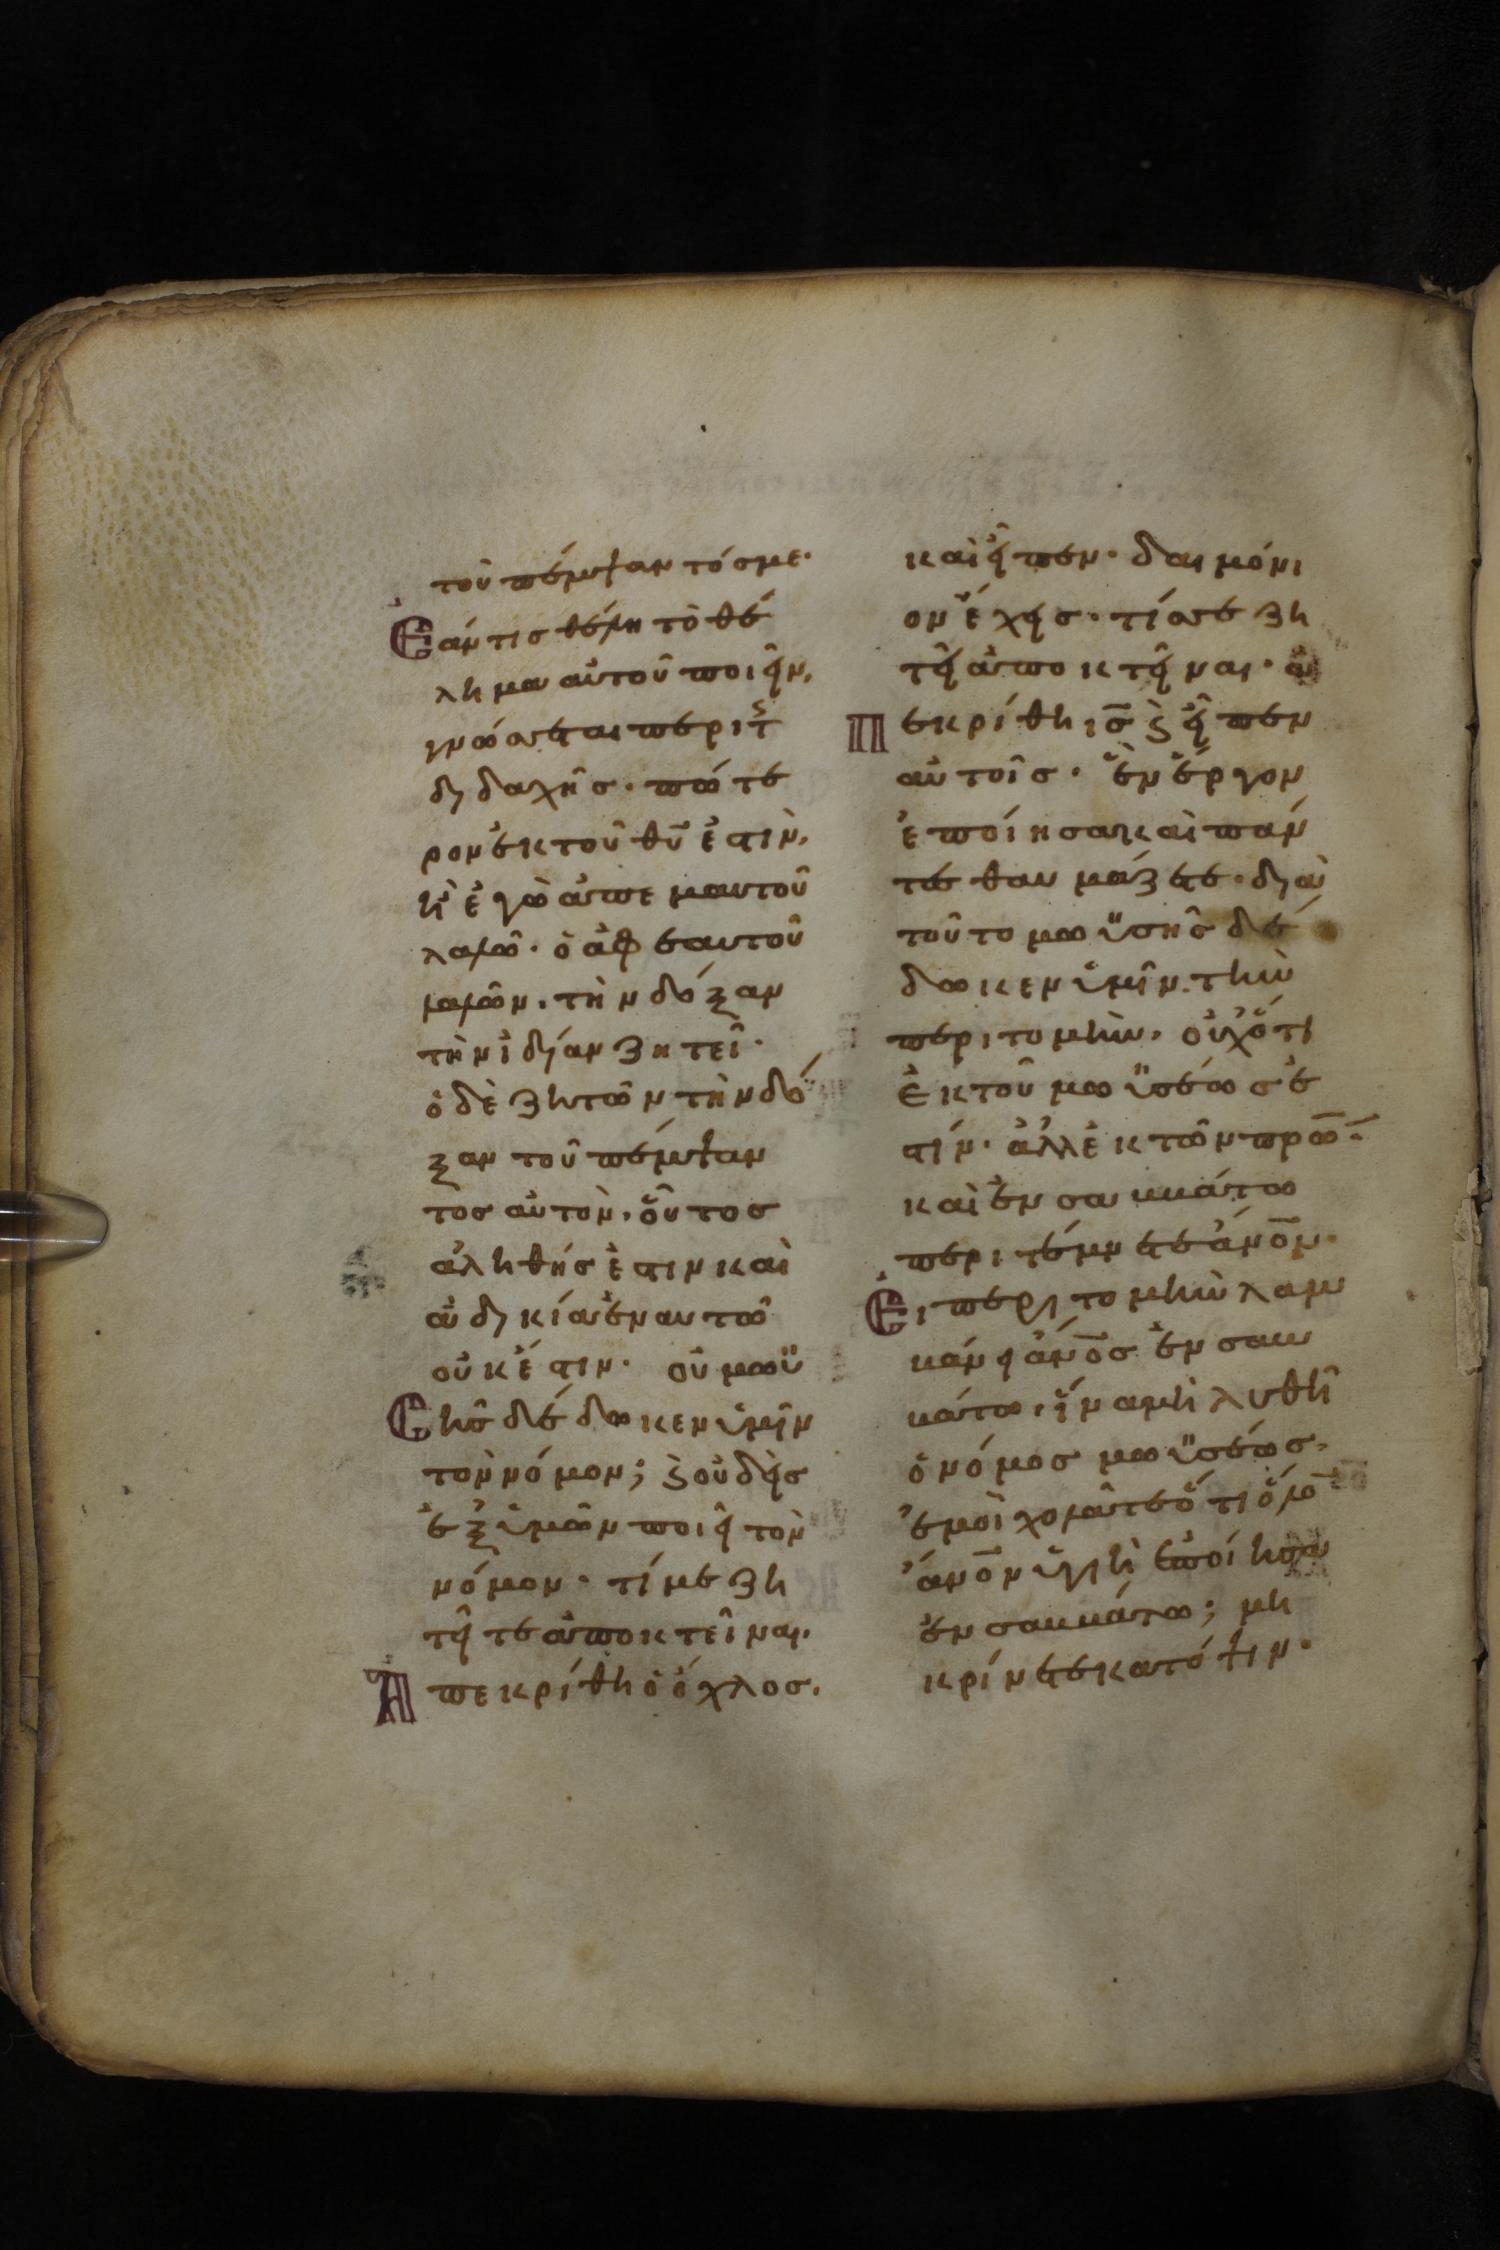 τοῦ πέμψαντόσ με·
Ἐάν τισ θέλη τὸ θέ
λημα αὐτοῦ ποιεῖν,
γνώσεται περὶ τ῀
διδαχῆσ· πώτε
ρον ἐκ τοῦ θυ ἐστιν,
ἢ ἐγὼ ἀπεμαυτοῦ
λαλῶ· ὁ ἀφεαυτοῦ
λαλῶν, τὴν δόξαν
τὴν ἰδίαν ζητεῖ·
ὁ δὲ ζητῶν τὴν δό
ξαν τοῦ πέμψαν
τοσ αὐτὸν, οὗτοσ
ἀληθήσ ἐστιν καὶ
ἀδικία ἐν αυτῶ
οὐκ έστιν· οὐ μωϋ
Σῆσ δέδωκεν ὑμῖν
τὸν νόμον; ϗ οὐδεὶσ
ἐξ ὑμῶν ποιεῖ τὸν
νόμον· τί με ζη
τεῖτε ἀποκτεῖναι,
Ἀπεκρίθη ὁ όχλοσ,
καὶ εἶπεν· δαιμόνι
ον έχεισ· τίσ σε ζη
τεῖ ἀποκτεῖναι· ἀ
Πεκρίθη ισ ϗ εἶπεν
αὐτοῖσ· ἓν έργον
ἐποίησα καὶ πάν
τεσ θαυμάζετε· διὰ
τοῦτο μωϋσῆσ δέ
δωκεν ὑμῖν τὴν
περιτομὴν, οὐχ ὅτι
ἐκ τοῦ μωϋσέωσ ἐ
στίν· ἀλλ ἐκ τῶν πρων·
καὶ ἐν σαββάτω
περιτέμνετε ἀνον·
Εἰ περιτομὴν λαμ
βάνει ἀνοσ ἐν σαβ
βάτω, ἵνα μὴ λυθῆ
ὁ νόμοσ μωϋσέωσ,
ἐμοὶ χολᾶτε ὅτι ὅλο
ἀνον ὑγιῆ ἐποίησα
ἐν σαββάτω; μὴ
κρίνετε κατ όψιν·